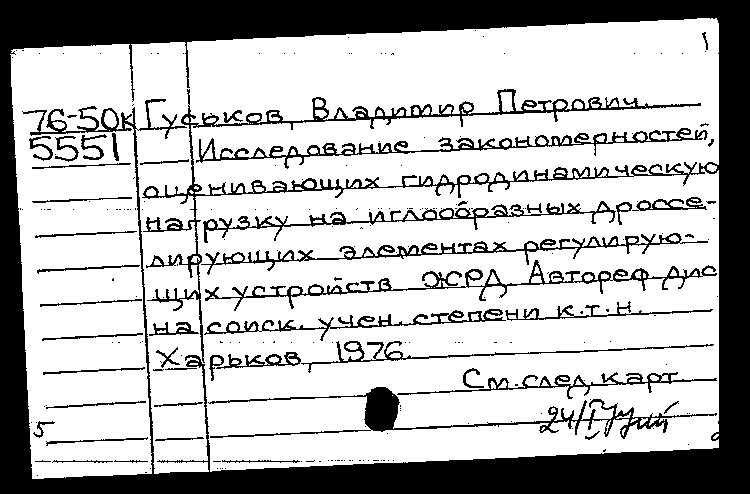 1
76-50к Гуськов, Владимир Петрович.
5551 Исследование закономерностей,
оценивающих гидродинамическую
нагрузку на иглообразных дроссе-
лирующих элементах регулирую-
щих устройств ЖРД. Автореф дис
на соиск. учен. степени к.т.н.
Харьков, 1976.
См. след. карт
24/I
5